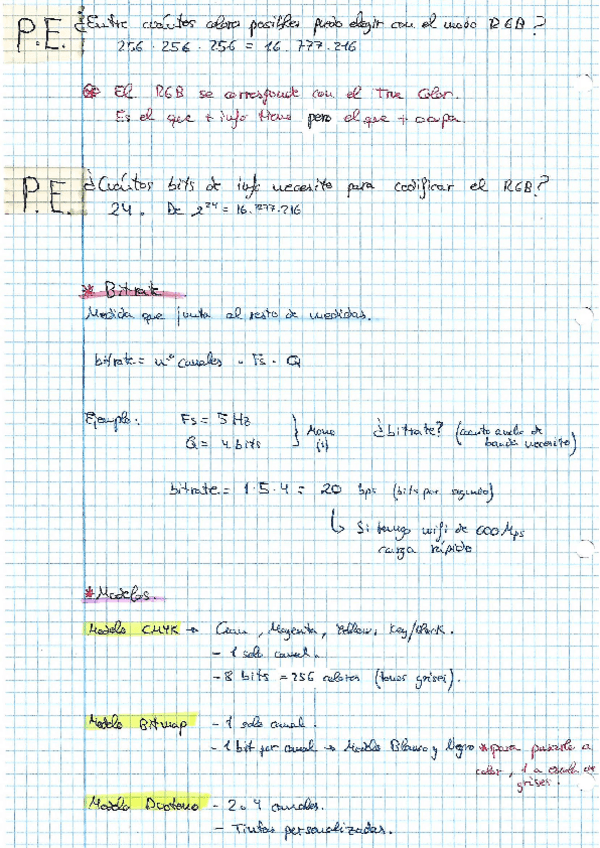 P.E.
¿Entre cuántos colores posibles puedo elegir con el modo RGB?
256 · 256 · 256 = 16.777.216
* El RGB se corresponde con el True Color.
Es el que + info tiene pero el que + ocupa.
P.E.
¿Cuántos bits de info necesito para codificar el RGB?
24. De 2^24 = 16.777.216
* Bitrate
Medida que junta al resto de medidas.
bitrate = nº canales · Fs · Q
Ejemplo: Fs = 5 Hz
Q = 4 bits
} Mono (1)
¿bitrate? (cuánto ancho de
banda necesito)
bitrate = 1 · 5 · 4 = 20 bps (bits por segundo)
↳ Si tengo wifi de 600 Mps
carga rápido
* Modelos.
Modelo CMYK → Cian, Magenta, Yellow, Key/Black.
- 1 solo canal.
- 8 bits = 256 colores (tonos grises).
Modelo Bitmap - 1 solo canal.
- 1 bit por canal → Modelo Blanco y Negro * para pasarle a
color, 1 a escala de
grises.
Modelo Duotono - 2 o 4 canales.
- Tintas personalizadas.